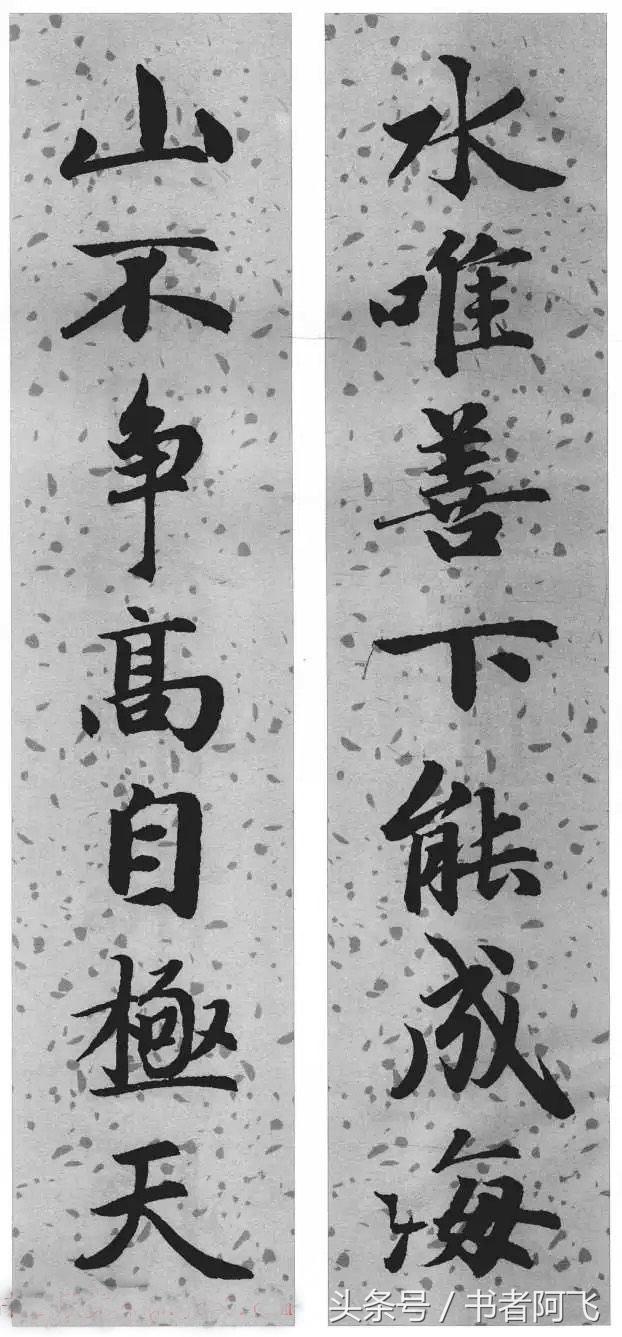 水唯善下能成海
山不争高自極天
头条号 / 书者阿飞